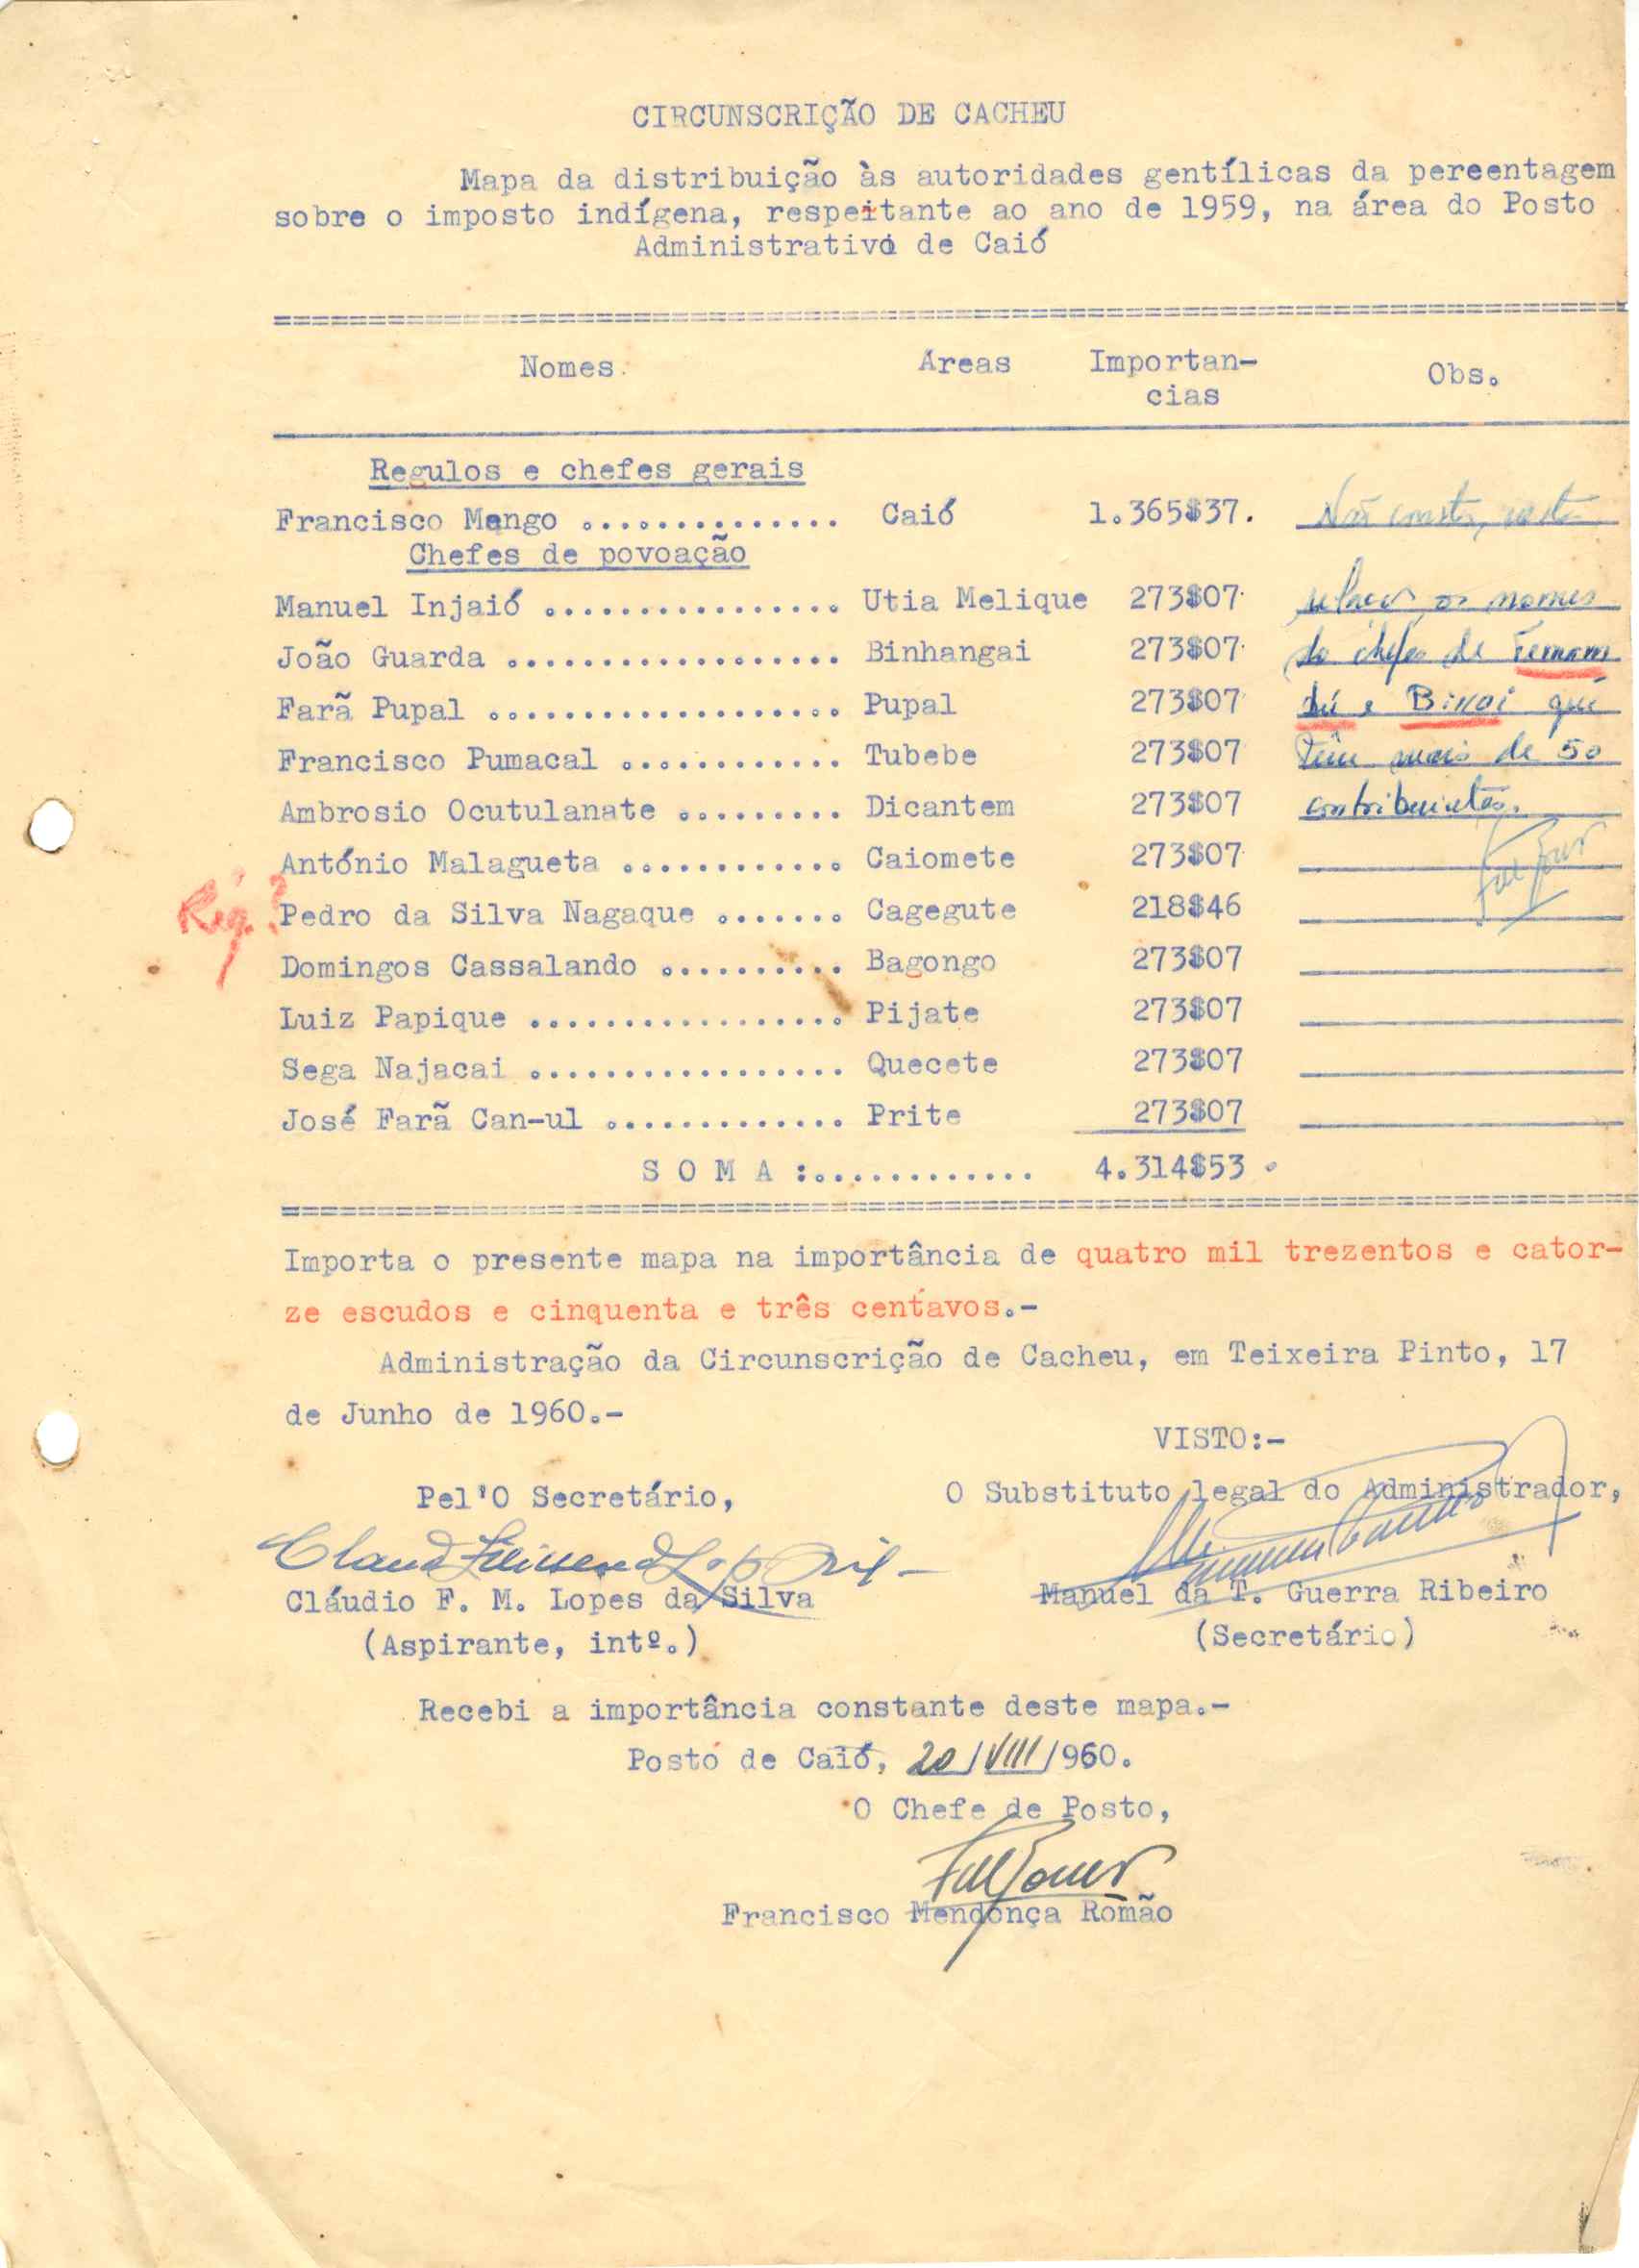 CIRCUNSCRIÇÃO DE CACHEU
Mapa da distribuição às autoridades gentílicas da pereentagem
sobre o imposto indígena, respeitante ao ano de 1959, na área do Posto
Administrativo de Caió
Nomes. Áreas Importan- Obs.
cias
Regulos e chefes gerais
Francisco Mango .............. Caió 1.365$37. Não consta, nesta
Chefes de povoação
Manuel Injaió ................ Utia Melique 273$07 relação os nomes
João Guarda .................. Binhangai 273$07 do chefes de
Farã Pupal ................... Pupal 273$07 e que
Francisco Pumacal ............ Tubebe 273$07 têm mais de 50
Ambrosio Ocutulanate ......... Dicantem 273$07 contribuintes.
António Malagueta ............ Caiomete 273$07
Reg.? Pedro da Silva Nagaque ....... Cagegute 218$46
Domingos Cassalando .......... Bagongo 273$07
Luiz Papique ................. Pijate 273$07
Sega Najacai ................. Quecete 273$07
José Farã Can-ul ............. Prite 273$07
S O M A :............ 4.314$53
Importa o presente mapa na importância de quatro mil trezentos e cator-
ze escudos e cinquenta e três centavos.-
Administração da Circunscrição de Cacheu, em Teixeira Pinto, 17
de Junho de 1960.-
VISTO:-
Pel'O Secretário, O Substituto legal do Administrador,
Cláudio F. M. Lopes da Silva Manuel da T. Guerra Ribeiro
(Aspirante, intº.) (Secretário)
Recebi a importância constante deste mapa.-
Posto de Caió, 20/VIII/960.
O Chefe de Posto,
Francisco Mendonça Romão